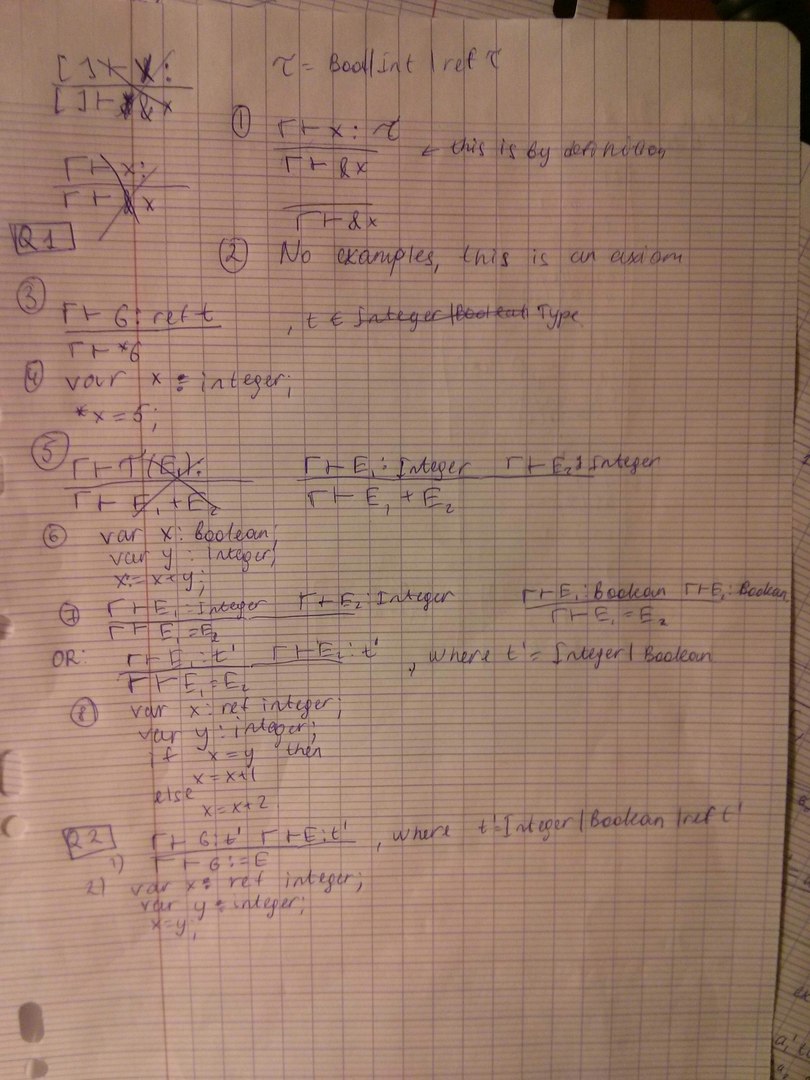 τ = Bool|Int | ref τ
[ ] ⊢ x :
[ ] ⊢ & x
① Γ ⊢ x : τ
Γ ⊢ &x ← this is by definition
Γ ⊢ x :
Γ ⊢ & x
Γ ⊢ &x
Q1
② No examples, this is an axiom
③ Γ ⊢ 6 : ref t , t ∈ Integer |Boolean| Type
Γ ⊢ *6
④ var x : integer;
*x = 5;
⑤ Γ ⊢ T(E₁): Γ ⊢ E₁ : Integer Γ ⊢ E₂ : Integer
Γ ⊢ E₁ + E₂ Γ ⊢ E₁ + E₂
⑥ var x : Boolean;
var y : Integer;
x := x+y;
⑦ Γ ⊢ E₁ : Integer Γ ⊢ E₂ : Integer Γ ⊢ E₁ : Boolean Γ ⊢ E₁ : Boolean
Γ ⊢ E₁ = E₂ Γ ⊢ E₁ = E₂
OR: Γ ⊢ E₁ : t' Γ ⊢ E₂ : t' , where t' = Integer | Boolean
Γ ⊢ E₁ = E₂
⑧ var x : ref integer;
var y : integer;
if x = y then
x = x+1
else
x = x+2
Q2
1) Γ ⊢ 6 : t' Γ ⊢ E : t' , where t'=Integer | Boolean | ref t'
Γ ⊢ 6 := E
2) var x : ref integer;
var y : integer;
x=y;